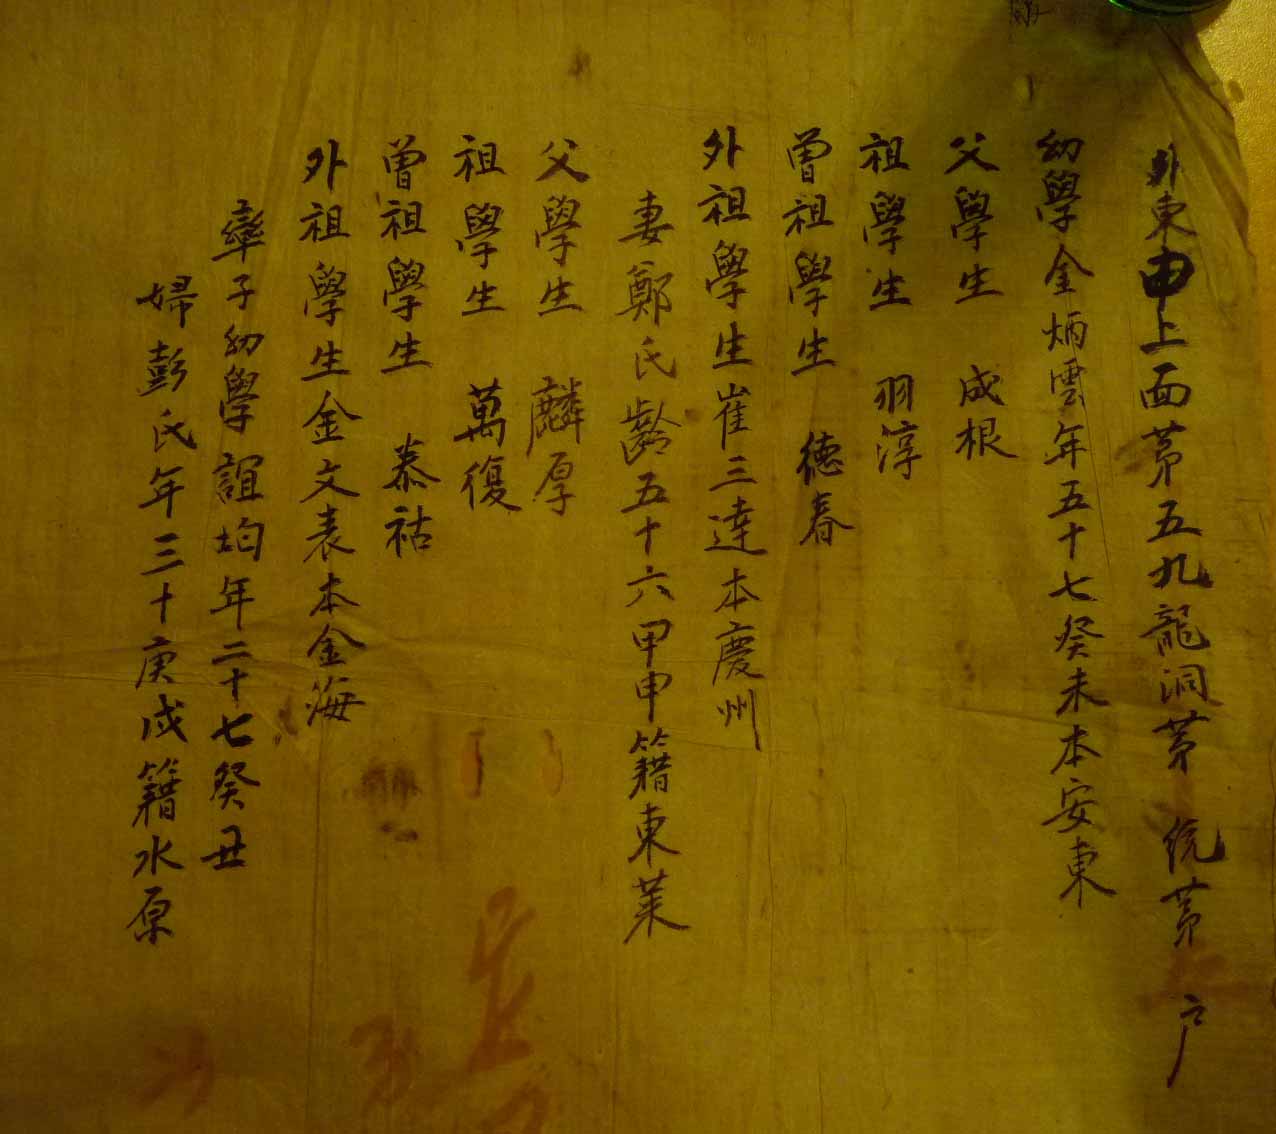 外東面上面苐五九龍洞苐 統苐 户
幼學金炳雲年五十七癸未本安東
父學生 成根
祖學生 羽淳
曾祖學生 德春
外祖學生崔三達本慶州
妻鄭氏齡五十六甲申籍東萊
父學生 麟厚
祖學生 萬復
曾祖學生 泰祜
外祖學生金文表本金海
率子幼學誼均年二十七癸丑
婦彭氏年三十庚戌籍水原